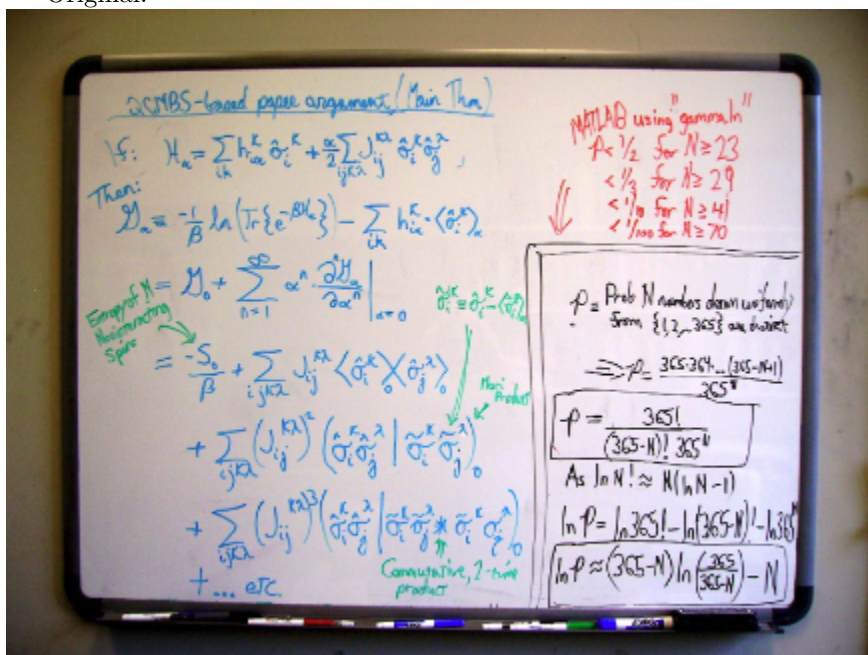 Original:
QCMBS-based paper argument (Main Thm)
If: H_α = Σ_{ iκ } h_{iα}^κ σ̂_i^κ + α/2 Σ_{ijκλ} J_{ij}^{κλ} σ̂_i^κ σ̂_j^λ ,
Then:
G_α = -1/β ln(Tr{e^{-βH_α}}) - Σ_{iκ} h_{iα}^κ · ⟨σ̂_i^κ⟩_α
= G_0 + Σ_{n=1}^∞ α^n · ∂^n G_α / ∂α^n |_{α=0}
σ̃_i^κ ≡ σ̂_i^κ - ⟨σ̂_i^κ⟩
Entropy of N
Noninteracting
Spins
= -S_0/β + Σ_{ijκλ} J_{ij}^{κλ} ⟨σ̂_i^κ⟩_0 ⟨σ̂_j^λ⟩_0
Mori
Product
+ Σ_{ijκλ} (J_{ij}^{κλ})^2 (σ̂_i^κ σ̂_j^λ | σ̃_i^κ σ̃_j^λ)_0
+ Σ_{ijκλ} (J_{ij}^{κλ})^3 (σ̂_i^κ σ̂_j^λ | σ̃_i^κ σ̃_j^λ * σ̃_i^κ σ̃_j^λ)_0
+ ... etc.
Commutative, 2-time
product
MATLAB using "gammaln"
P < 1/2 for N ≥ 23
< 1/3 for N ≥ 29
< 1/10 for N ≥ 41
< 1/100 for N ≥ 70
P = Prob N numbers drawn uniformly
from {1,2,...365} are distinct
⇒ P = 365·364·...(365-N+1) / 365^N
P = 365! / (365-N)! 365^N
As ln N! ≈ N(lnN-1)
ln P = ln365! - ln(365-N)! - ln365^N
ln P ≈ (365-N) ln(365/(365-N)) - N